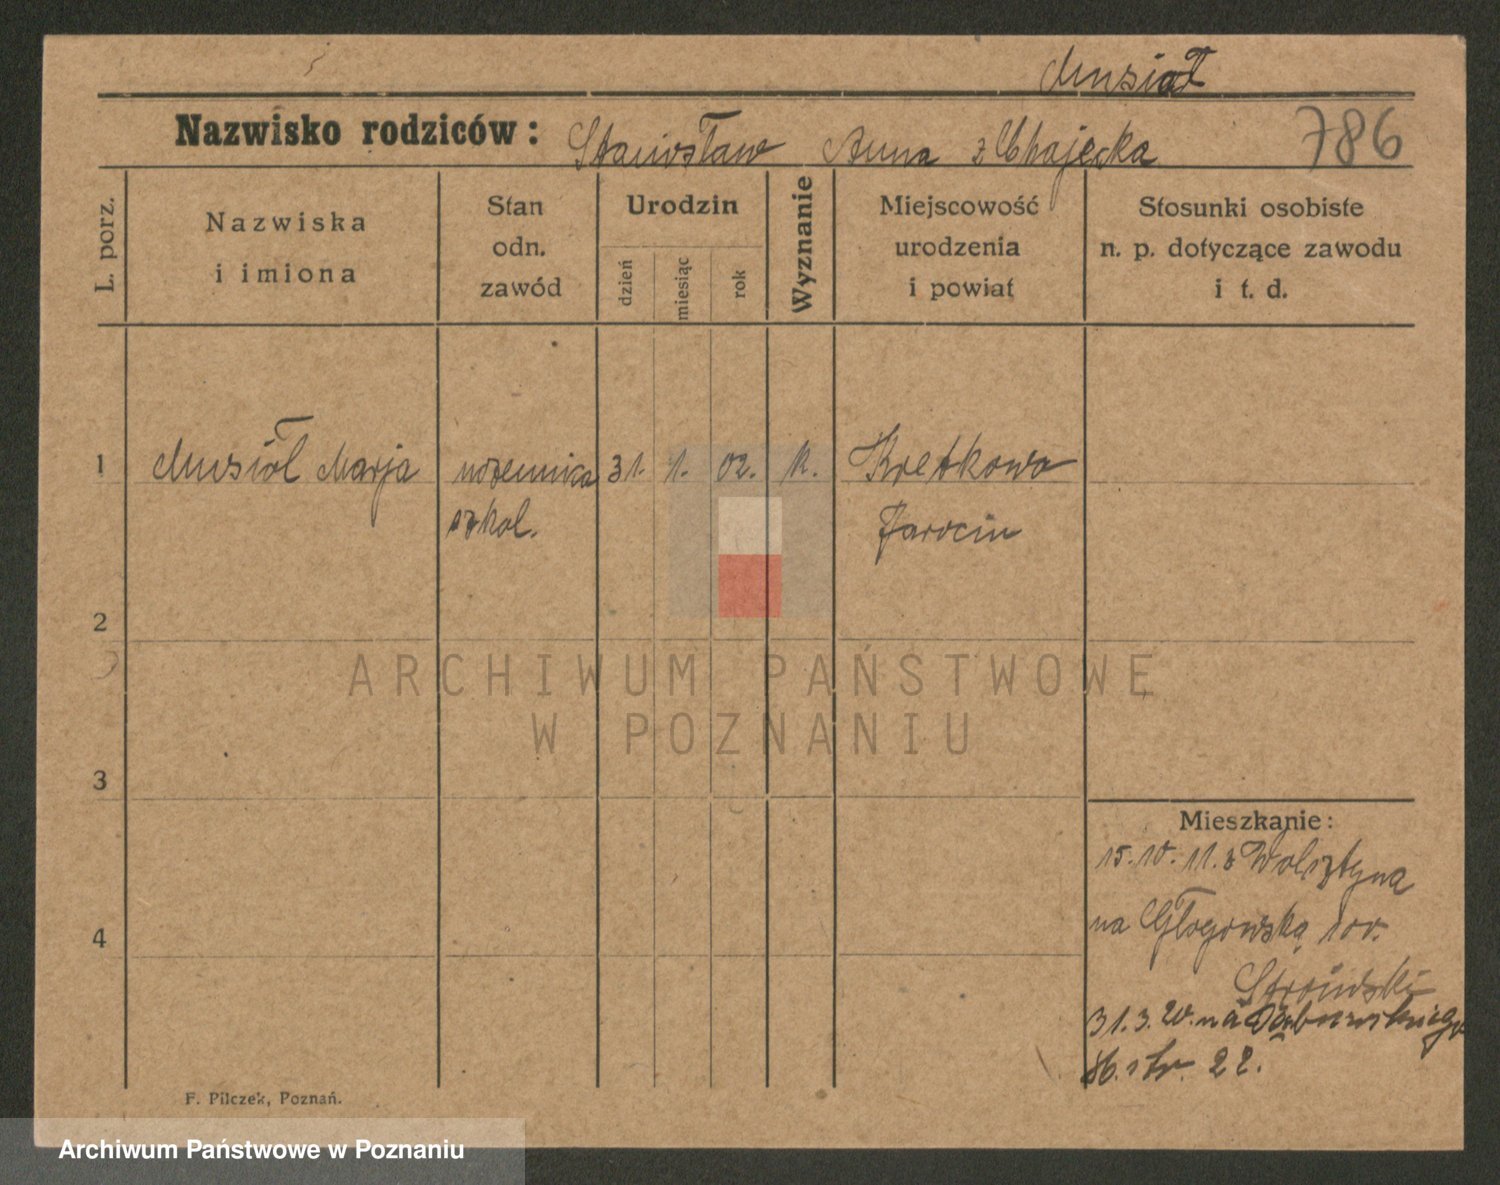 Musiał
Nazwisko rodziców: Stanisław Anna z Chajecka
786
L. porz.
Nazwiska
i imiona
Stan
odn.
zawód
Urodzin
dzień
miesiąc
rok
Wyznanie
Miejscowość
urodzenia
i powiat
Stosunki osobiste
n. p. dotyczące zawodu
i t. d.
1 Musioł Marja uczennica 31. 1. 02. k. Kretkowo
szkol. Jarocin
2
3
4
Mieszkanie:
15. 10. 11. z Wolsztyna
na Głogowską 100.
31. 3. 20. na Dąbrowskiego
22.
F. Pilczek, Poznań.
ARCHIWUM PAŃSTWOWE
W POZNANIU
Archiwum Państwowe w Poznaniu